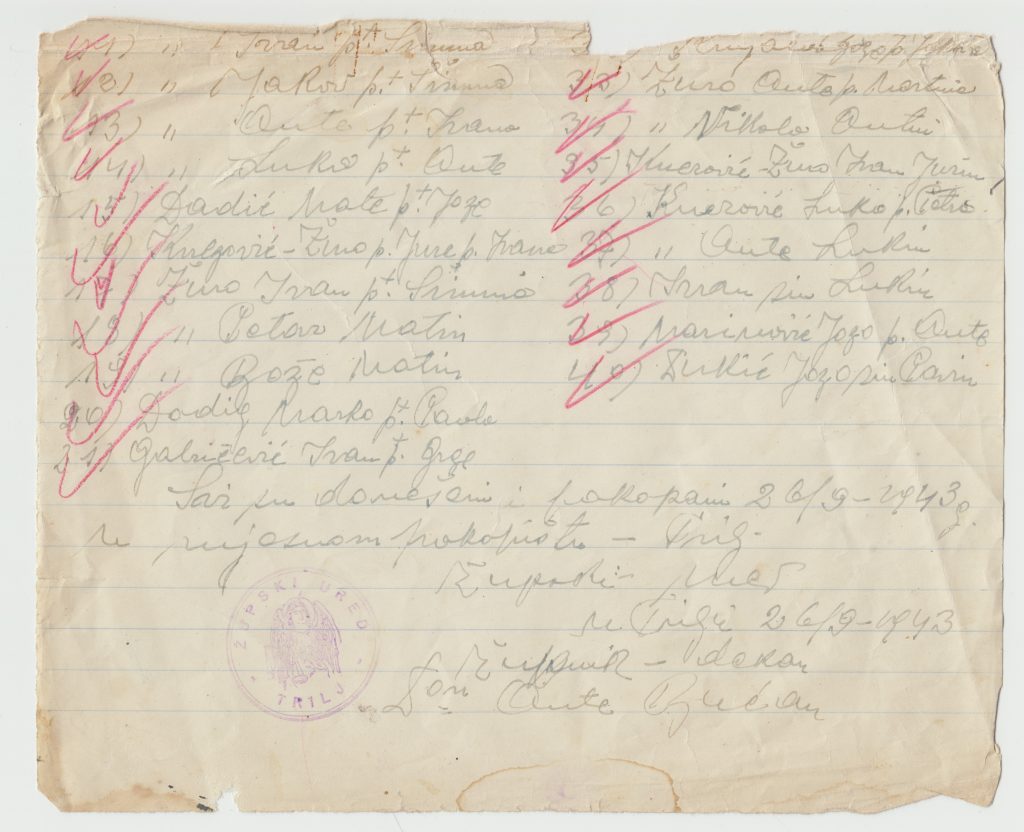 11) „ Ivan p.† Šimuna
13) „ Jakov p.† Šimuna
13) „ Ante p.† Ivana
14) „ Luka p.† Ante
15) Dadić Mate p.† Joze
16) Knezović-Žuro p. Jure p. Ivana
17) Žuro Ivan p.† Šimuna
18) „ Petar Matin
19) „ Bože Matin
20) Dadić Marko p.† Pavla
21) Gabričević Ivan p.† Grge
Joze p.
33) Žuro Ante p. Martina
34) „ Nikola Antin
35) Knezović-Žuro Ivan Jurin
36) Knezović Luka p. Petra
37) „ Ante Lukin
38) Ivan sin Lukin
39) Marinović Jozo p. Ante
40) Jozo sin Pavin
Svi su donešeni i pokopani 26/9-1943 g.
u mjesnom pokopištu - Trilj.
Župski ured
u Trilji 26/9-1943
Župnik - dekan
Don Ante Bućan
ŽUPSKI URED
TRILJ